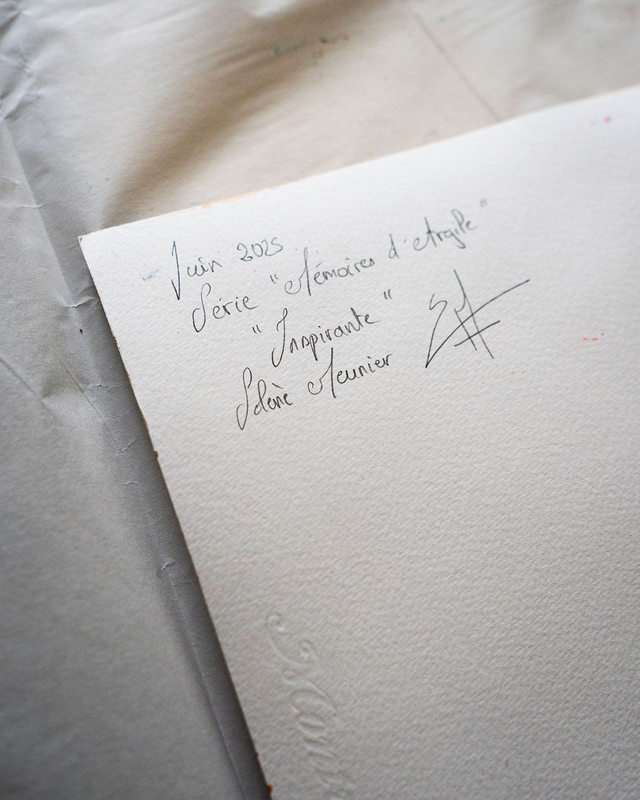 Juin 2025
Série "Mémoires d'Argile"
"Inspirante"
Solène Meunier